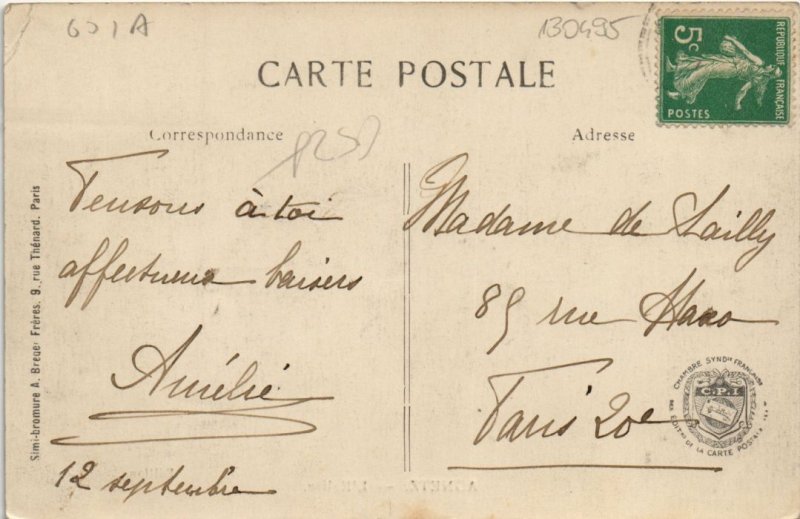 601A
130495
REPUBLIQUE FRANÇAISE
5c
POSTES
CARTE POSTALE
Correspondance
Adresse
Pensons à toi
affectueux baisers
Amélie
12 septembre
Madame de Lailly
85 rue Haxo
Paris 20e
Simi-bromure A. Breger Frères, 9, rue Thénard, Paris
CHAMBRE SYNDle FRANÇAISE
DES EDITRs DE LA CARTE POSTALE
C.P.I